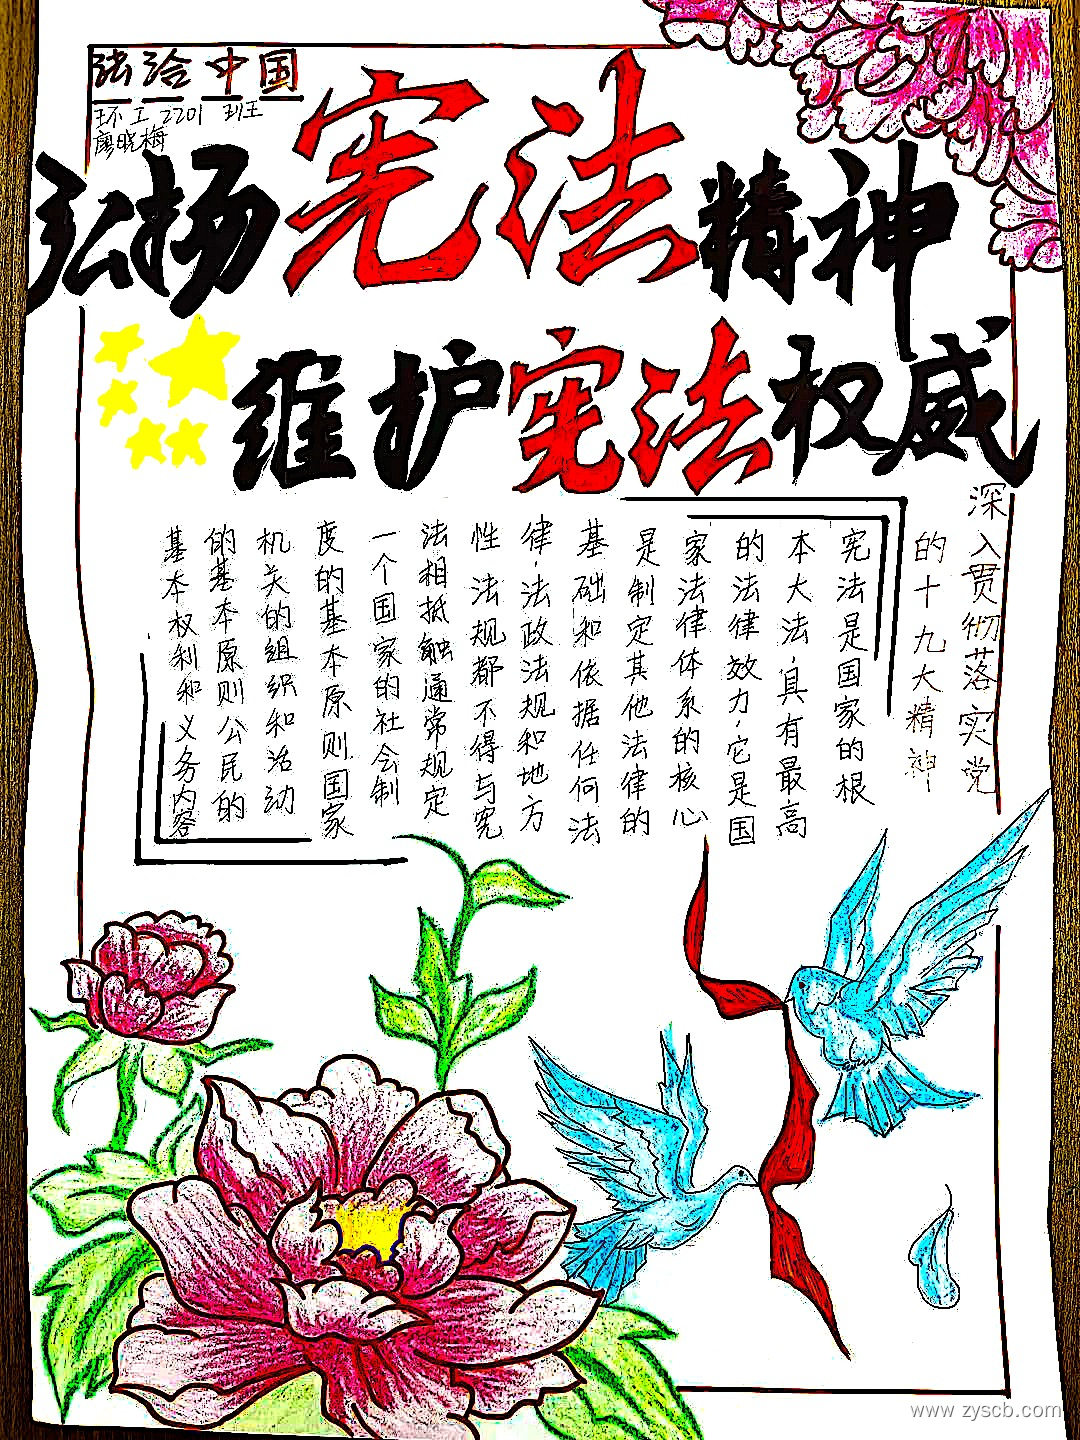 法治中国
环工2201班
廖晓梅
弘扬宪法精神
维护宪法权威
深入贯彻落实党
的十九大精神
宪法是国家的根
本大法,具有最高
的法律效力,它是国
家法律体系的核心
是制定其他法律的
基础和依据任何法
律,法政法规和地方
性法规都不得与宪
法相抵触通常规定
一个国家的社会制
度的基本原则国家
机关的组织和活动
的基本原则公民的
基本权利和义务内容
www.zyscb.com